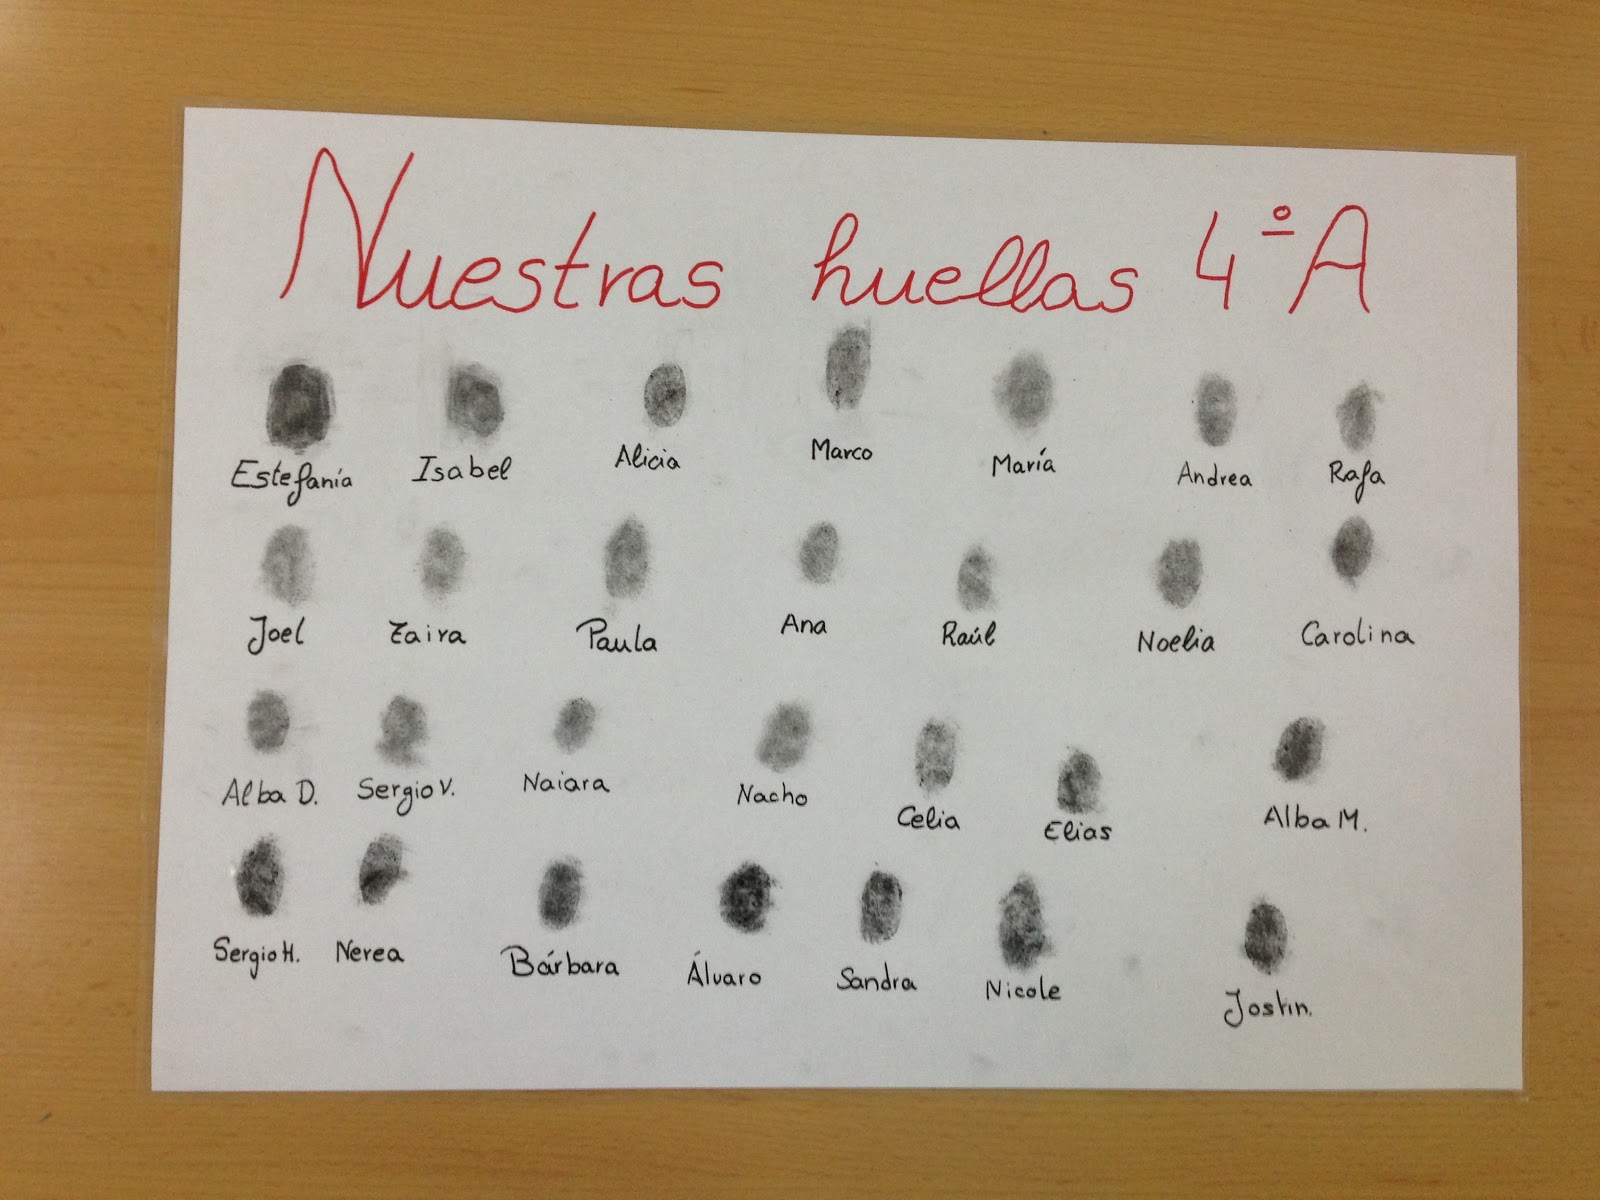 Nuestras huellas 4º A
Estefanía Isabel Alicia Marco María Andrea Rafa
Joel Zaira Paula Ana Raúl Noelia Carolina
Alba D. Sergio V. Naiara Nacho Celia Elias Alba M.
Sergio H. Nerea Bárbara Álvaro Sandra Nicole Jostin.